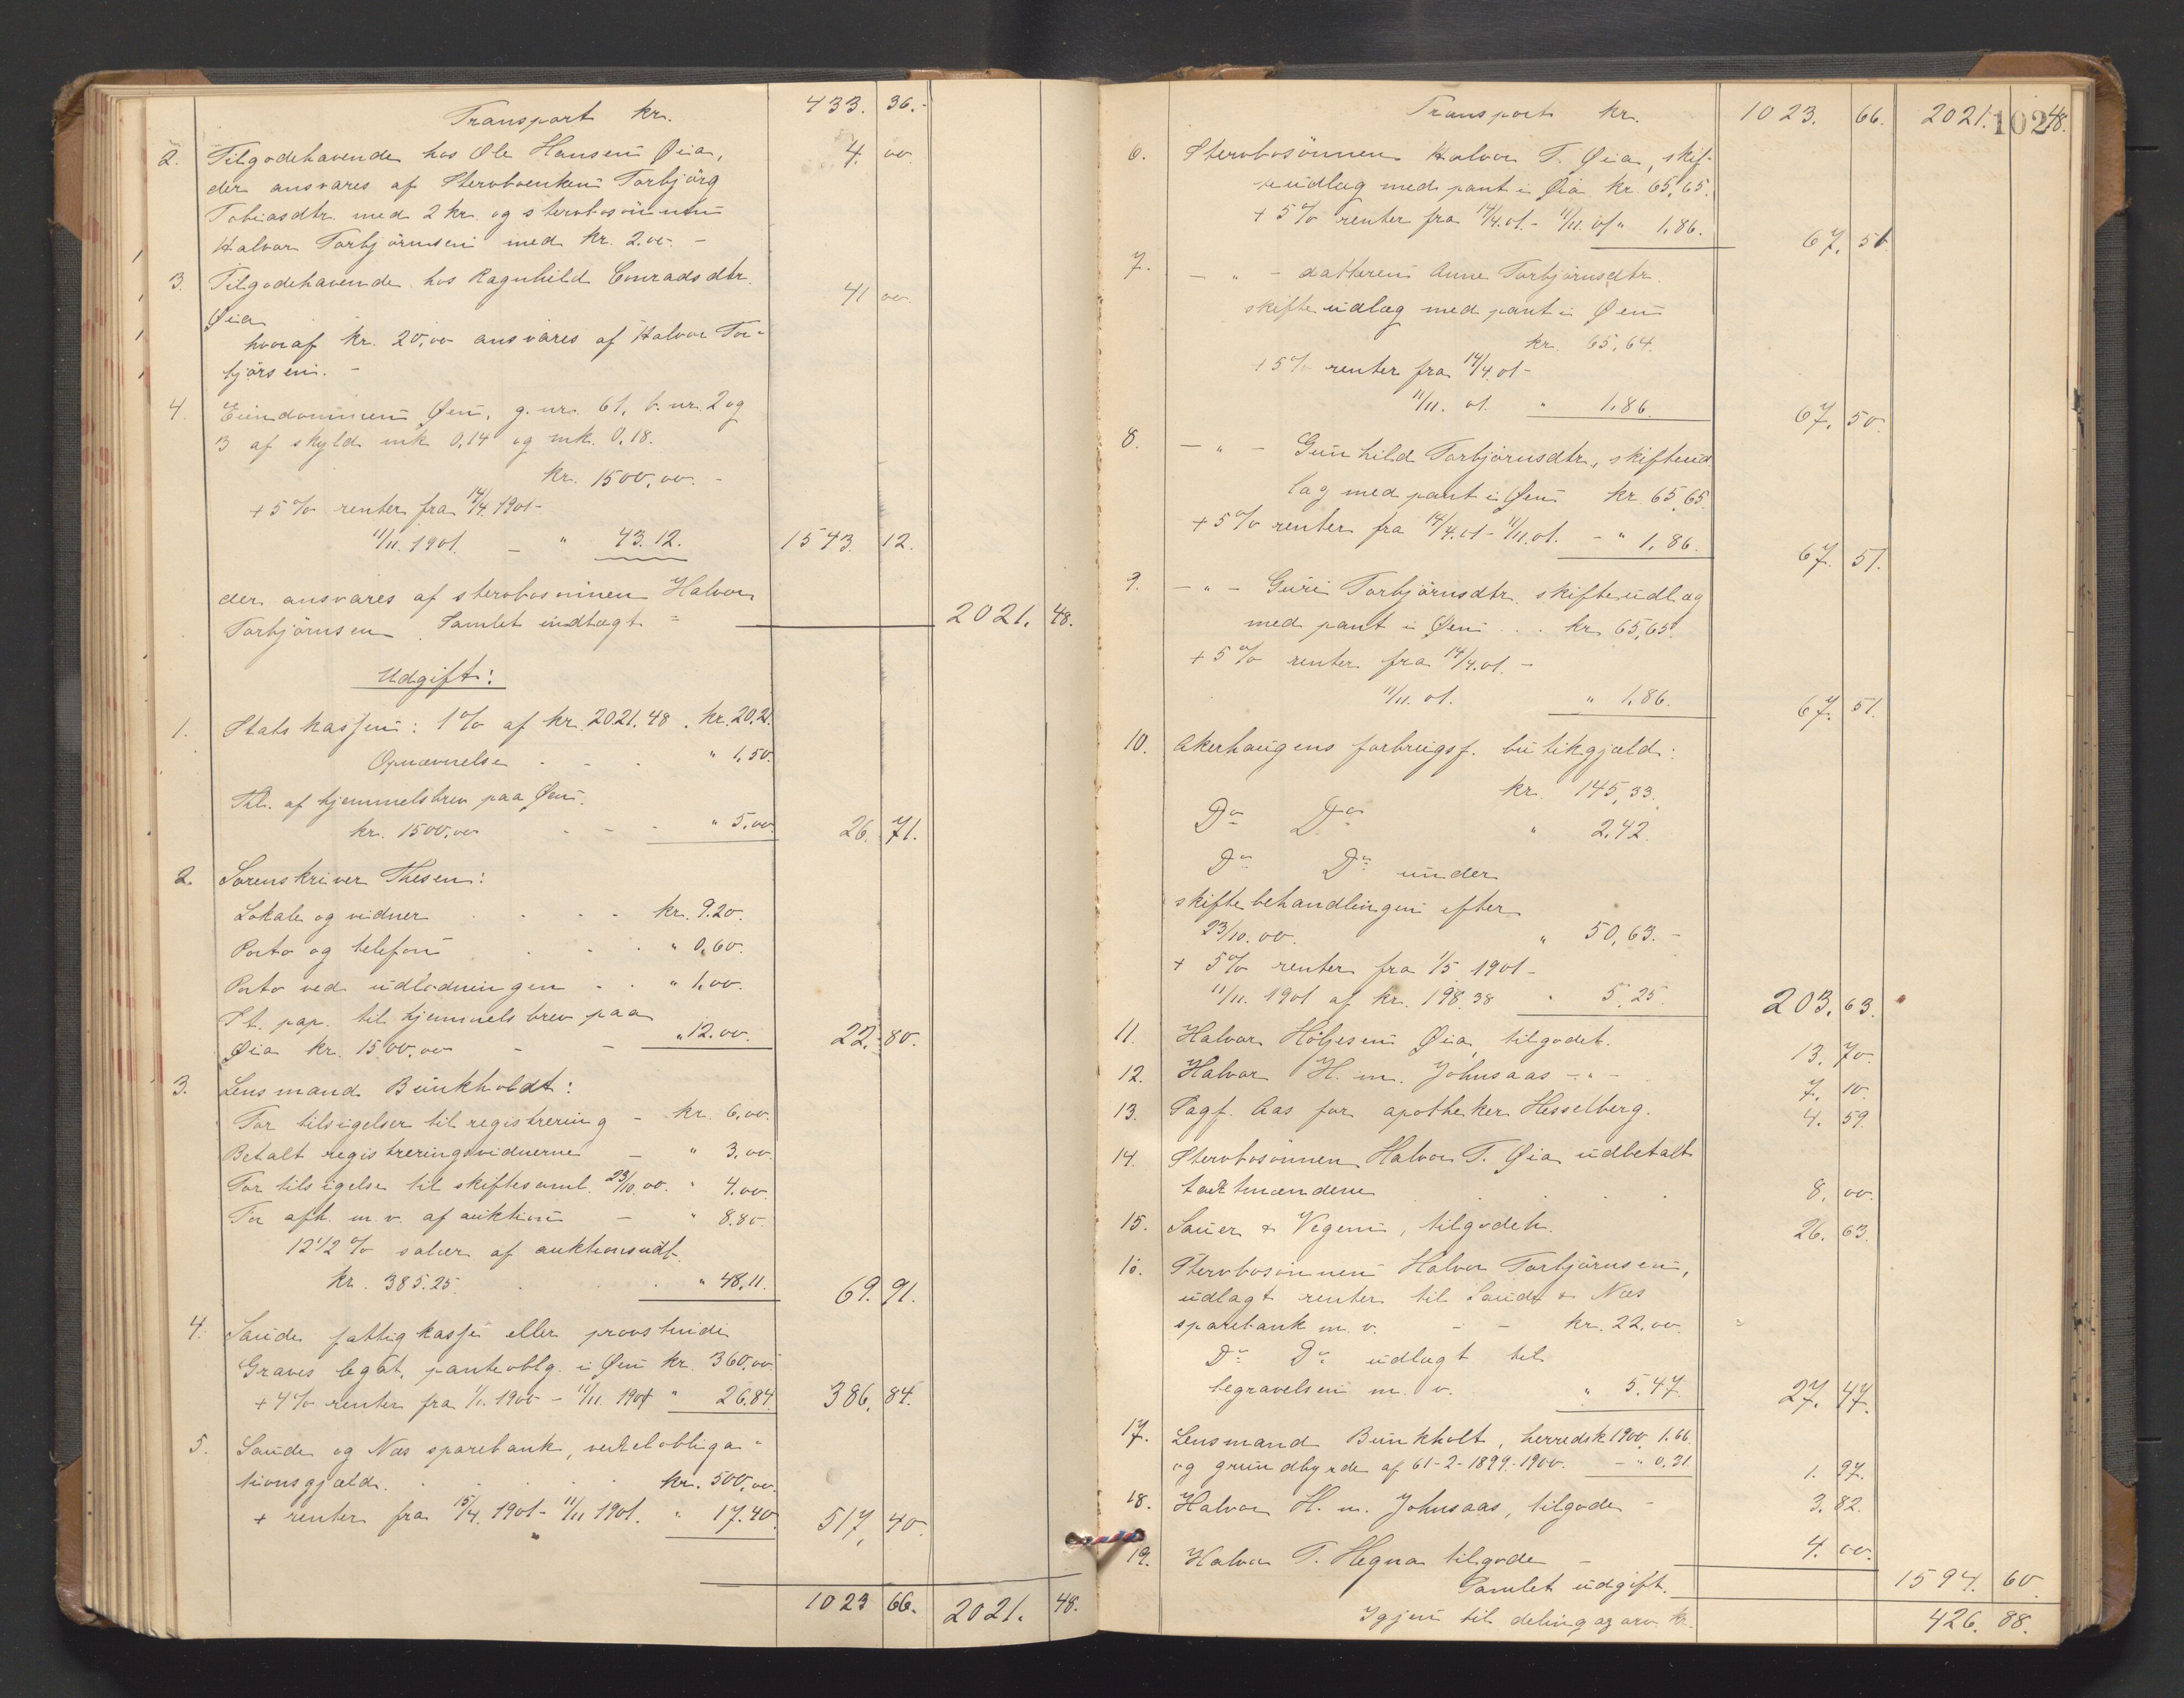 Transport kr. 433. 36.-
2. Tilgodehavende hos Ole Hansen Øia, 4. 00.
der ansvares af Stervboenken Torbjörg
Tobiasdtr. med 2 kr. og stervbosönnen
Halvor Torbjörnsen med kr. 2.00. -
3. Tilgodehavende hos Ragnhild Conradsdtr. 41 00.
Øia
hvoraf kr. 20,00 ansvares af Halvor Tor-
björsen. -
4. Eiendommen Øen, g. nr. 61, b. nr. 2 og
3 af skyld mk 0,14 og mk. 0,18.
kr. 1500,00. -
+ 5 % renter fra 14/4. 1901 -
11/11. 1901. - " 43.12. 1543. 12.
der ansvares af stervbosönnen Halvor
Torbjörnsen. Samlet indtægt = 2021. 48.
Udgift:
1. Statskassen: 1 % af kr. 2021.48. kr. 20,21.
Opnævnelse . . . " 1,50.
Thl. af hjemmelsbrev paa Øen.
kr. 1500,00 . . . " 5,00. 26. 71.
2. Sorenskriver Thesen:
Lokale og vidner . . . . kr. 9.20.
Porto og telefon . . . " 0,60.
Porto ved udlodningen . . " 1,00.
St. pap. til hjemmelsbrev paa
Øia kr. 1500,00 - - " 12.00. 22. 80.
3. Lensmand Bunkholdt:
For tilsigelser til registrering - kr. 6,00.
Betalt registreringsvidnerne - " 3,00.
For tilsigelse til skiftesaml. 23/10.00. " 4,00.
For afh. m. v. af auktion - " 8.80.
12 1/2 % salær af auktionsudb.
kr. 385.25. . . . " 48,11. 69. 91.
4. Saude fattigkasse eller provstinde
Graves legat, panteoblg. i Øen kr. 360,00
+ 4 % renter fra 1/1. 1900 - 11/11. 1901 " 26.84. 386, 84.
5. Saude og Næs sparebank, vexelobliga-
tionsgjæld. . . . . kr. 500,00.
+ renter fra 15/4. 1901 - 11/11 1901. " 17.40. 517, 40.
1023 66. 2021. 48.
Transport kr. 1023. 66. 2021. 48.
102
6. Stervbosönnen Halvor T. Øia, skif-
teudlæg med pant i Øia kr. 65,65.
+ 5 % renter fra 14/4.01. - 11/11. 01 " 1,86. 67. 51.
7. - " - datteren Anne Torbjörnsdtr.
skifteudlæg med pant i Øen
kr. 65,64.
+ 5 % renter fra 14/4.01 -
11/11. 01. " 1,86. 67, 50.
8. - " - Gunhild Torbjörnsdtr., skifteud
læg med pant i Øen kr. 65,65.
+ 5 % renter fra 14/4.01 - 11/11.01. - " 1,86. 67. 51.
9. - " - Guri Torbjörnsdtr. skifteudlæg
med pant i Øen . . . kr. 65,65.
+ 5 % renter fra 14/4.01. -
11/11. 01. " 1,86. 67. 51.
10. Akerhaugens forbrugsf. butikgjæld:
kr. 145,33.
Do Do " 2,42.
Do Do under
skiftebehandlingen efter
23/10.00. " 50,63. -
+ 5 % renter fra 1/5 1901 -
11/11. 1901 af kr. 198.38 " 5,25. 203, 63.
11. Halvor Höljesen Øia, tilgodeh. 13. 70.
12. Halvor H. m. Johnsaas - " - 7. 10.
13. Sagf. Aas for apotheker Hesselberg. 4. 59.
14. Stervbosönnen Halvor T. Øia udbetalt
taxtmændene . . . . 8. 00.
15. Sauer & Vegem, tilgodeh. 26. 63.
16. Stervbosönnen Halvor Torbjörnsen,
udlagt renter til Saude & Næs
sparebank m. v. - - kr. 22,00.
Do Do udlagt til
begravelsen m. v. " 5,47. 27. 47.
17. Lensmand Bunkholt, herredsk 1900, 1.66.
og grundbyrde af 61-2-1899-1900. - " 0.31. 1. 97.
18. Halvor H. m. Johnsaas, tilgode - 3. 82.
19. Halvor T. Hegna tilgode - 4. 00.
Samlet udgift. 1594. 60.
Igjen til deling og arv kr. 426. 88.